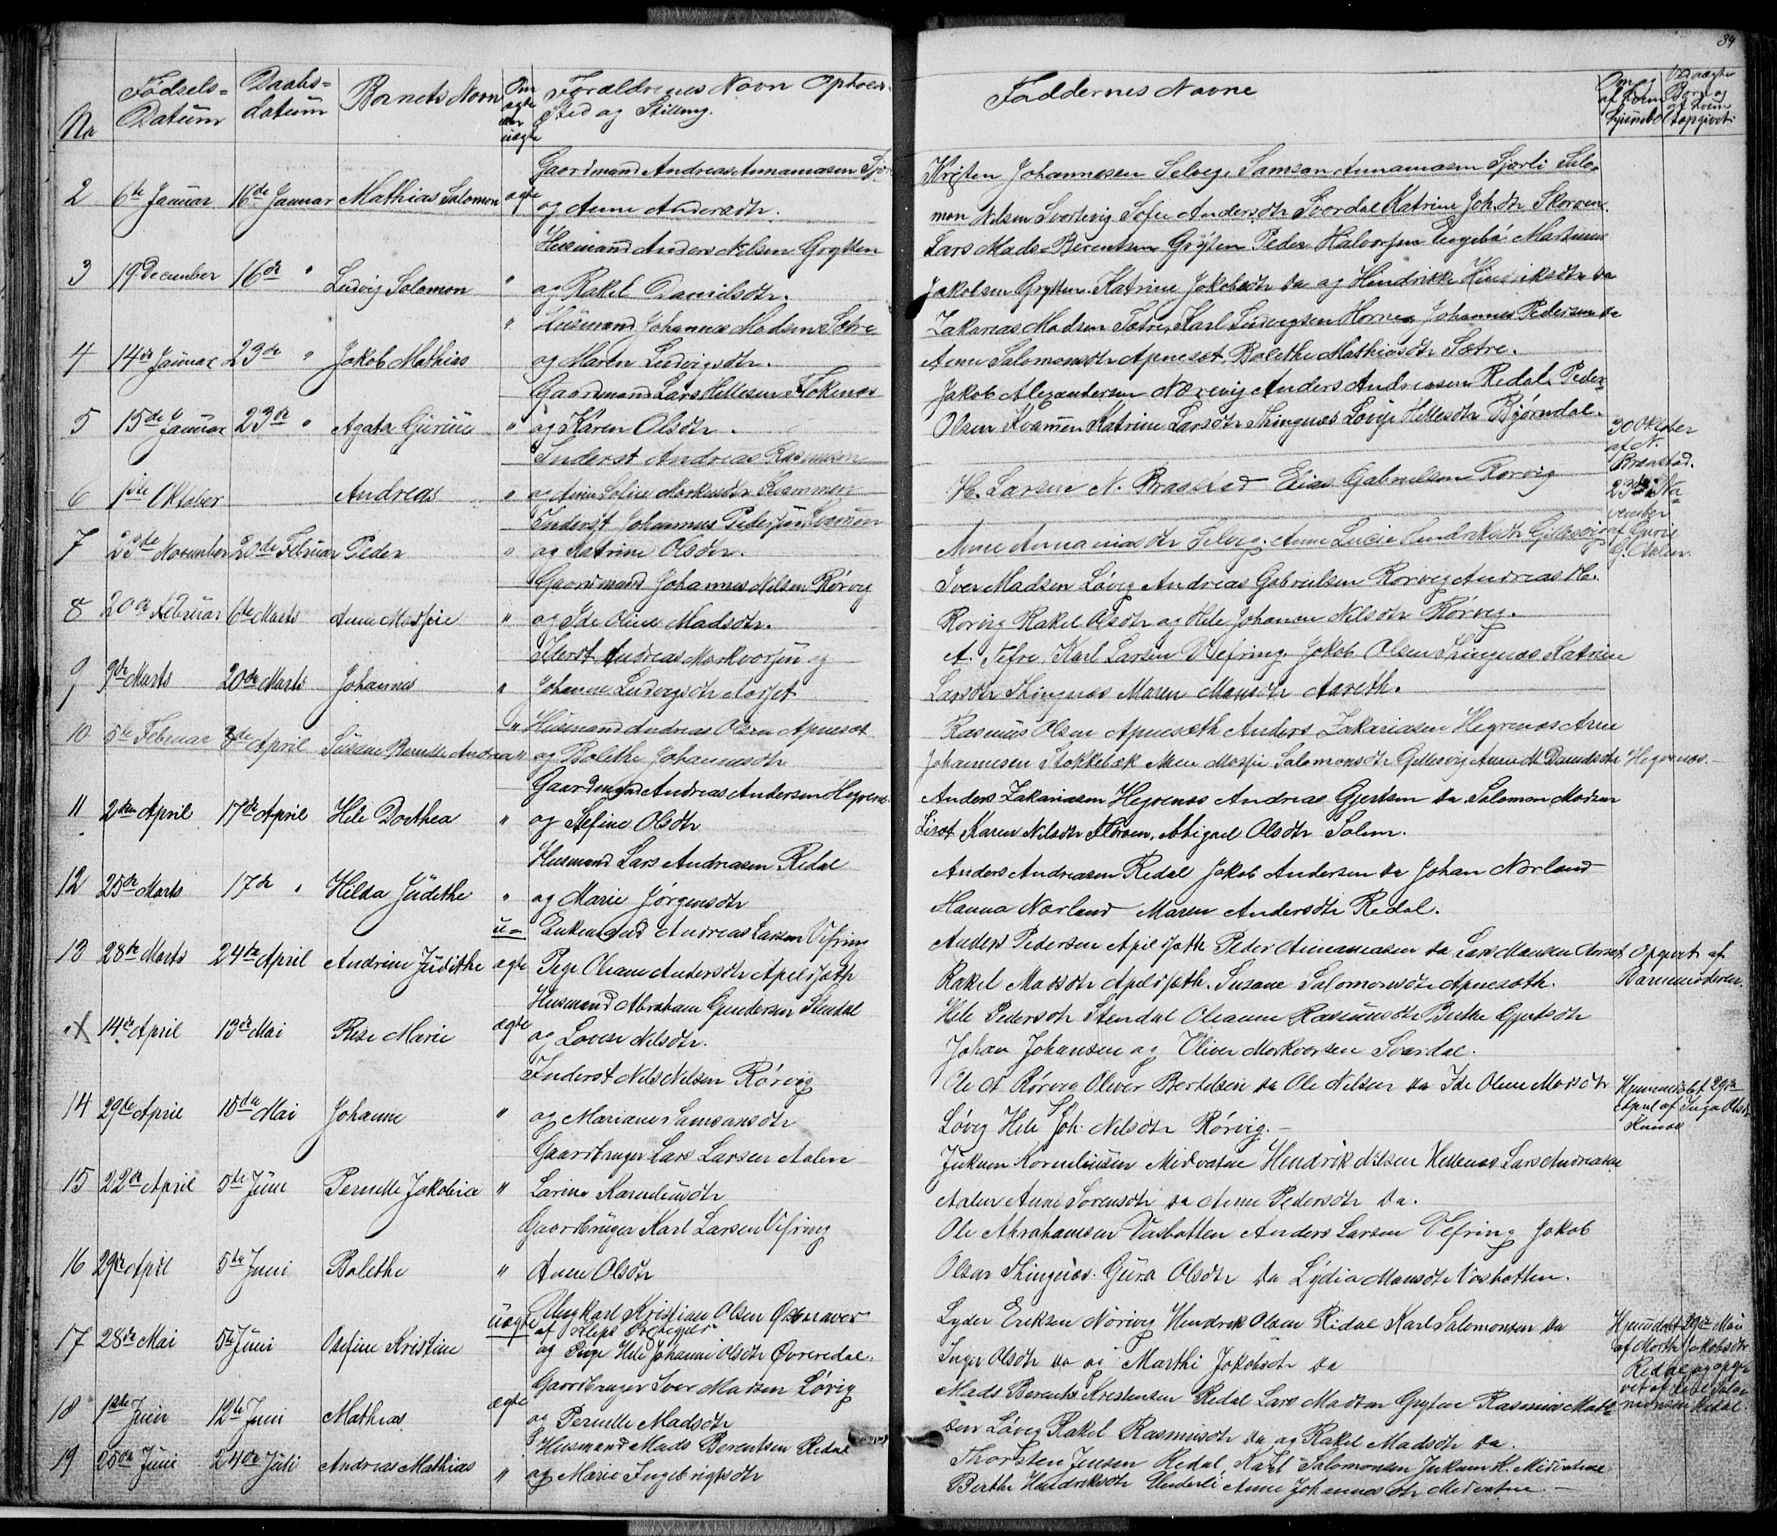 34
No
Fødsels-
Datum
Daabs-
datum
Barnets Navn
Om
ægte
eller
uægte
Forældrenes Navn Opholds-
Sted og Stilling.
Faddernes Navne
2 6te Januar 16de Januar Mathias Salomon ægte
Gaardmand Andreas Annaniasen
og Anne Andersdtr.
Kristen Johannesen Selvig Samson Annaniasen Salo-
mon Nilsen Svortevig Sofie Andersdtr Svordal Katrine Joh.dtr Skorven.
3 19 December 16de " Ludvig Salomon "
Husmand Anders Nilsen Grytten
og Rakel Danielsdtr.
Lars Mads Berentsen Gryten Peder Halvorsen Martinus
Jakobsen Grytten Katrine Jakobsdtr da og Hendrikke Hendriksdtr da
4 14de Januar 23de " Jakob Mathias "
Husmand Johannes Madsen Sætre
og Maren Ludvigsdtr.
Zakarias Madsen Sætre, Karl Ludvigsen Hornes Johannes Pedersen da
Anne Salomonsdtr Apneset. Bolethe Mathiasdtr Sætre.
5 15de Januar 23de " Agata Gurine "
Gaardmand Lars Hellesen Stokenes
og Karen Olsdtr.
Jakob Alexandersen Nærevig Anders Andreasen Redal. Peder
Olsen Kvamen Katrine Larsdtr Thingnes Lovise Hellesdtr Bjørndal.
6 1ste Oktober Andreas "
Inderst Andreas Rasmusen
og Anne Sofine Markusdtr
H. Larsen N. Brastad Elias Gabrielsen Rørvig
30 Oktober
af N.
Brastad.
7 23de November 20de Februar Peder "
Inderst Johannes Pedersen
og Katrine Olsdtr.
Anne Annaniasdtr Selvig. Anne Lucie
23de No
vember
af Gurie
8 20de Februar 6te Marts Anne Mosfie "
Gaardmand Johannes Nilsen Rørvig
og Ide Oline Madsdtr.
Iver Madsen Løvig Andreas Gabrielsen Rørvig Andreas H.
Rørvig Rakel Olsdtr og Hele Johanne Nilsdtr Rørvig.
9 9de Marts 20de Marts Johannes "
Inderst Andreas Markvorsen og
Johanne Ludvigsdtr Aarset
A. Sefre. Karl Larsen Vefring. Jakob Olsen Thingnes Katrine
Larsdtr Thingnes Maren Monsdtr Aarseth.
10 5te Februar April Susanne Bernille Andrea "
Husmand Andreas Olsen Apneset
og Bolethe Johannesdtr
Rasmus Olsen Apneseth Anders Zakariasen Hegrenes Arne
Johannesen Stokkebæk Anne Mosfie Salomonsdtr Gillesvig Anne M. Danielsdtr Hegrenes.
11 2den April 17de April Hele Dorthea "
Gaardmand Andreas Andersen Hegrenes
og Stefine Olsdtr
Anders Zakariasen Hegrenes Andreas Gjertsen da Salomon Madsen
Liset Karen Nilsdtr Floren, Abigael Olsdtr Solem.
12 25de Marts 17de " Hilda Judithe "
Husmand Lars Andreasen Redal
og Marie Jørgensdtr
Anders Andreasen Redal Jakob Andersen da Johan Norland
Hanna Norland Maren Andersdtr Redal.
13 28de Marts 24de April Andrine Judithe u-
ægte
Enkemand Andreas Larsen Vefring
Pige Oliane Andersdtr Apelsæth
Anders Pedersen Apelsæth Peder Annaniasen da Lars Monsen Aarset
Rakel Madsdtr Apelsæth. Susane Salomonsdtr Apneseth.
Opgivet af
Barnemoderen.
X 14de April 13de Mai Rise Marie ægte
Husmand Abraham Gundersen Stendal
og Lovise Nilsdtr.
Hele Pedersdtr Stendal Olianne Rasmusdtr Berthe Gjertsdtr
Johan Johansen og Oliver Markvorsen Svardal.
14 29de April 15de Mai Johanne "
Inderst Nils Nilsen Rørvig
og Mariane Samsonsdtr
Ole N. Rørvig Oliver Bertelsen da Ole Nilsen da Ide Oline Madsdtr
Løvig Hele Joh. Nilsdtr Rørvig.
Hjemmedøbt 29de
April af Inga Olsdtr
15 22de April 5te Juni Pernille Jakobia "
Gaardbruger Lars Larsen Aalen
Larine Korneliusdtr
Jukum Korneliusen Midvatne Hendrik Nilsen Hellenes. Lars Andreasen
Aalen Anne Sørensdtr da Anne Pedersdtr da.
16 29de April 5te Juni Bolethe "
Gaardbruger Karl Larsen Vefring
Anne Olsdtr
Ole Abrahamsen Vasbotten Anders Larsen Vefring Jakob
Olsen Thingnes. Guro Olsdtr da Lydia Monsdtr Vasbotten.
17 28de Mai 5te Juni Olefine Kristine uægte
Ungkarl Kristian Olsen
af
og Pige Hele Johanne Olsdtr Øvreredal.
Lyder Eriksen Norevig Hendrik Olsen Redal Karl Salomonsen da
Inger Olsdtr da og Marthe Jakobsdtr da
Hjemdøbt 29de Mai
af Marthe Jakobsdtr
Redal og opgi-
vet af Karl Salo-
monsen Redal
18 1ste Juni 12te Juni Mathias ægte
Gaardbruger Iver Madsen Løvig
og Pernille Madsdtr
Mads Berents Kristensen Redal Lars Madsen Gryten Rasmus Mad-
sen Løvig Rakel Rasmusdtr da og Rakel Madsdtr da.
19 25de Juni 24de Juli Andreas Mathias "
Husmand Mads Berentsen Redal
og Marie Ingebrigtsdtr
Thorsten Jensen Redal Karl Salomonsen Jukum K. Midvatne
Berthe Hendriksdtr Underli Anne Johannesdtr Medvatne.